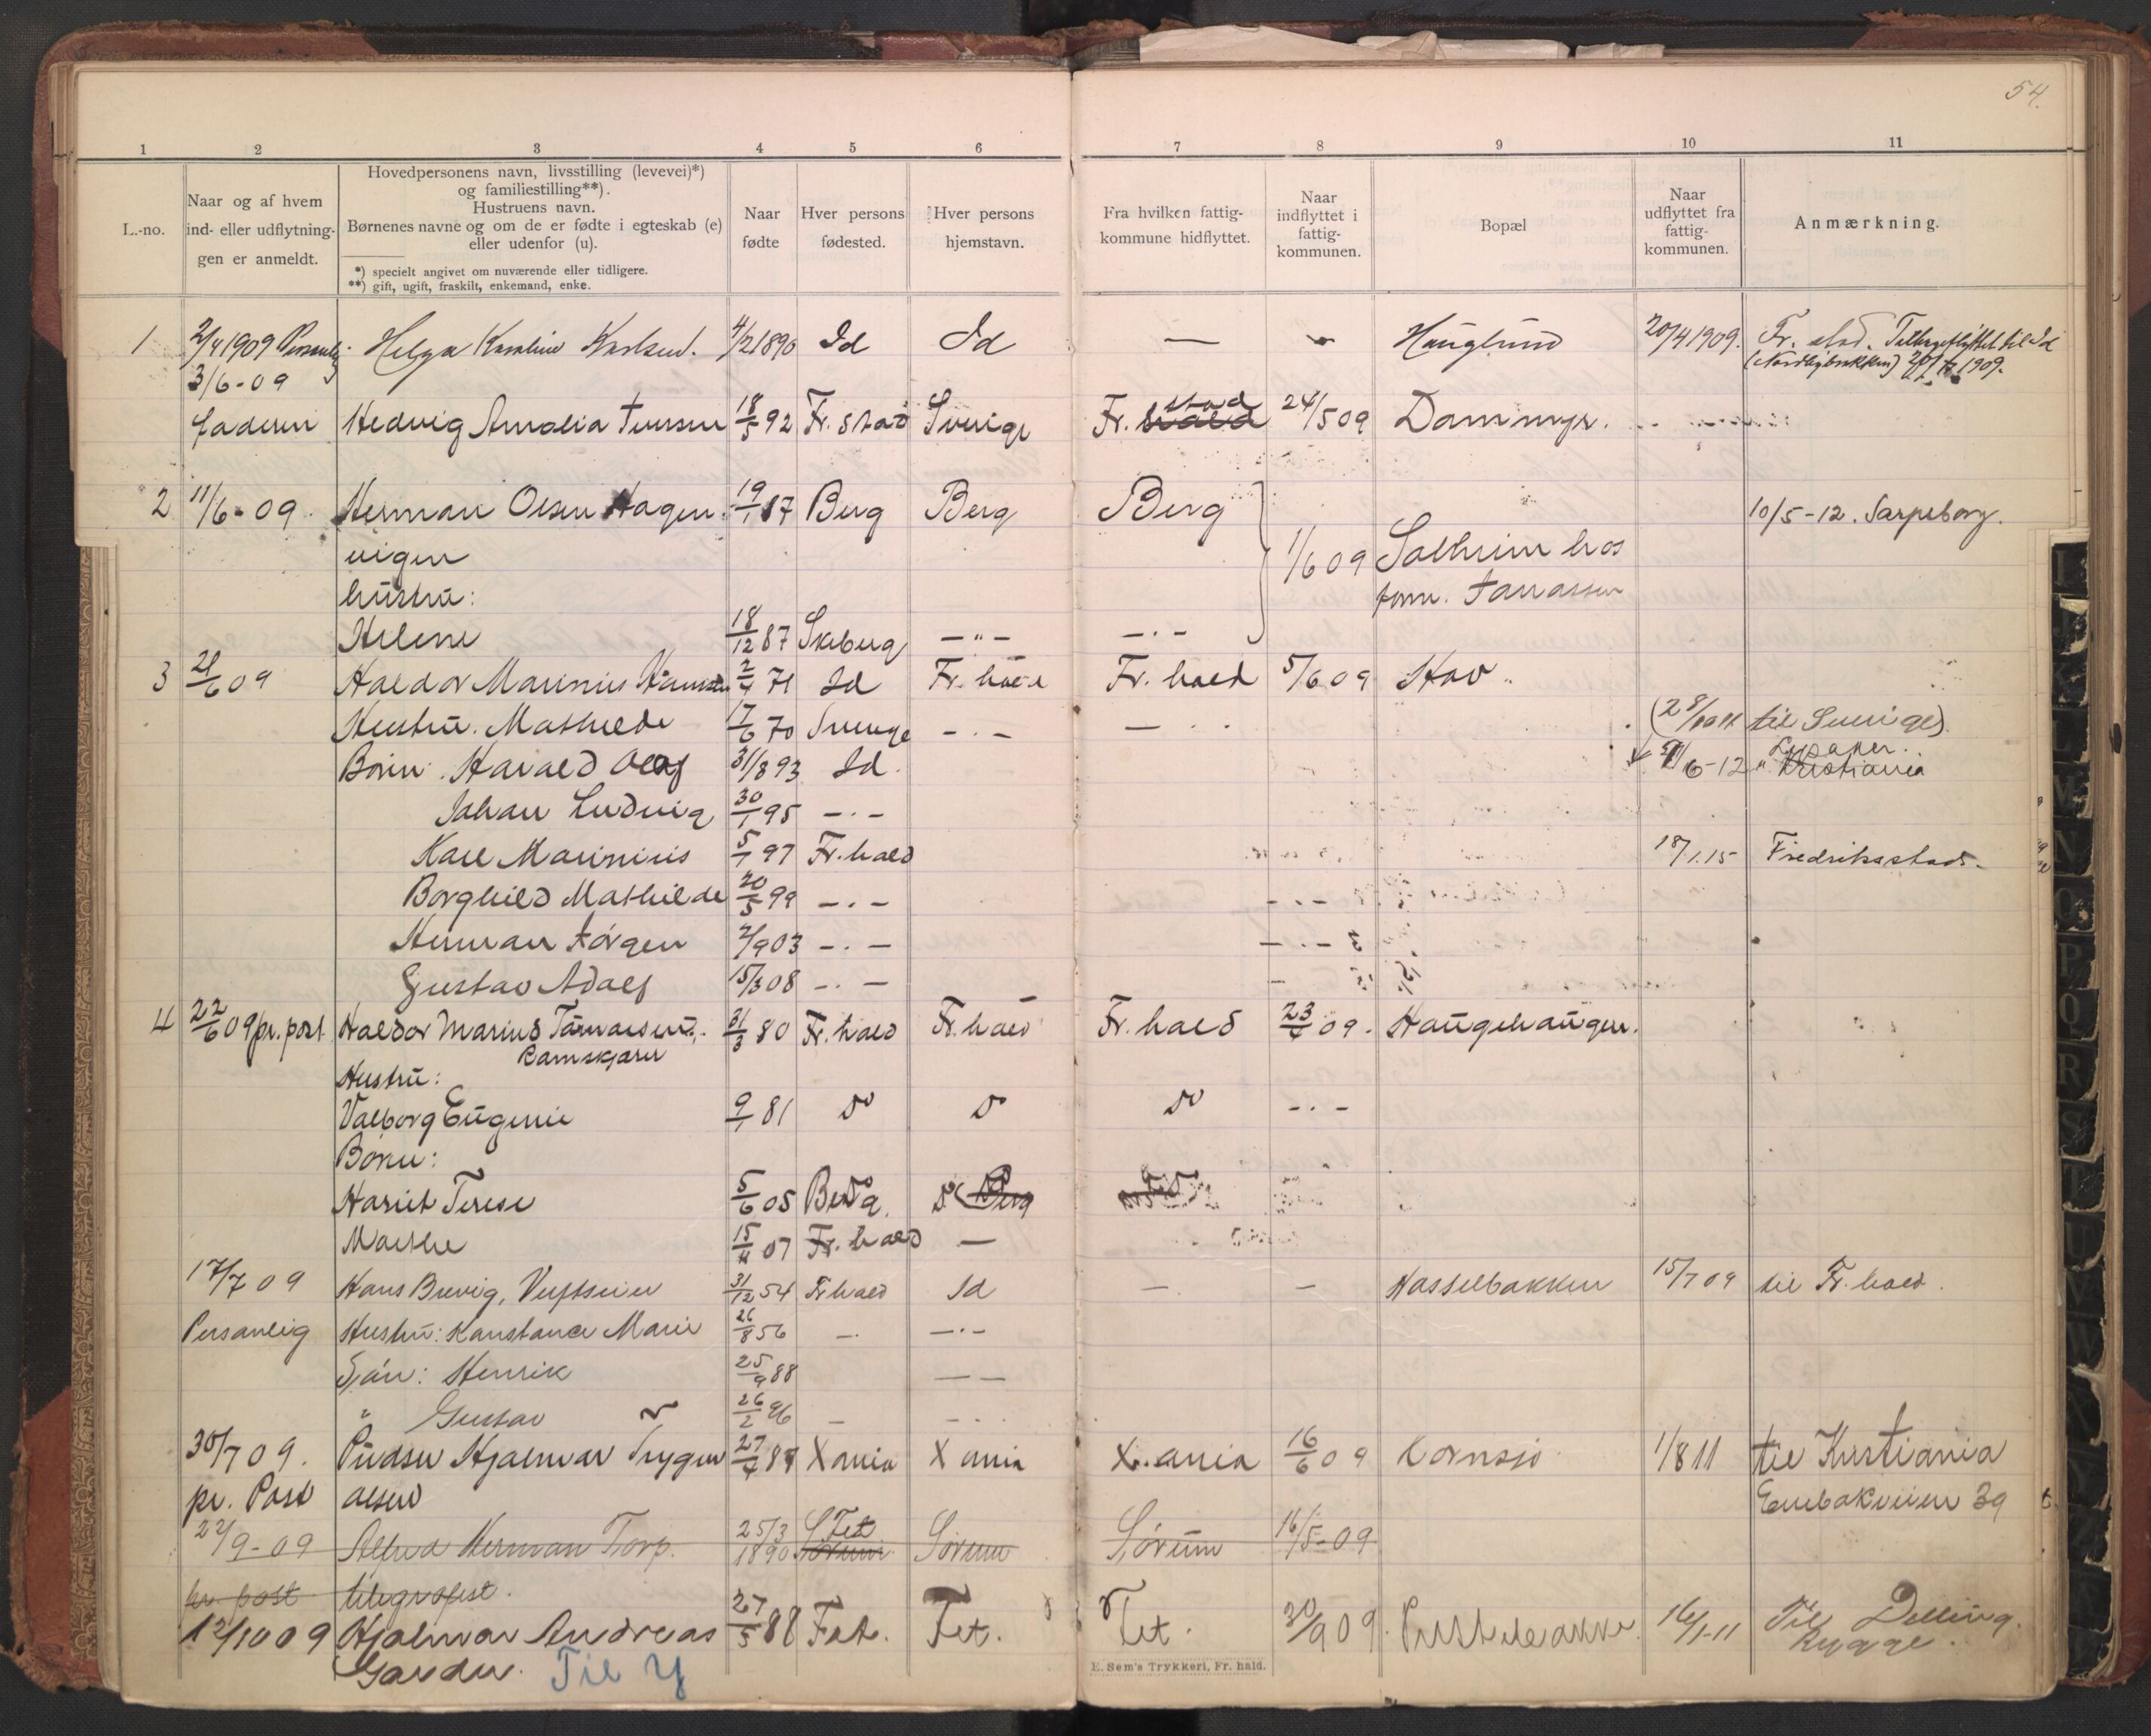 54.
1 2 3 4 5 6 7 8 9 10 11
L.-no.
Naar og af hvem
ind- eller udflytnin-
gen er anmeldt.
Hovedpersonens navn, livsstilling (levevei)*)
og familiestilling**).
Hustruens navn.
Børnenes navne og om de er fødte i egteskab (e)
eller udenfor (u).
*) specielt angivet om nuværende eller tidligere.
**) gift, ugift, fraskilt, enkemand, enke.
Naar
fødte
Hver persons
fødested.
Hver persons
hjemstavn.
Fra hvilken fattig-
kommune hidflyttet.
Naar
indflyttet i
fattig-
kommunen.
Bopæl
Naar
udflyttet fra
fattig-
kommunen.
Anmærkning.
1 2/4 1909 Helga Karoline Karlsen. 4/2 1890 Id Id — Hauglund 20/4 1909. Fr. stad. til Id
3/6-09 1909.
faderen Hedvig Amalia Iversen 18/5 92 Fr. stad Sverige Fr. hald stad 24/5 09 Dammyr.
2 11/6-09. Herman Olsen Hagen 19/1 87 Berg Berg Berg 10/5-12. Sarpsborg.
vigen 1/6 09 Solheim hos
hustru: form.
Helene 18/12 87 Skeberg —"— —"—
3 21/6 09 Haldor Marinius Hansen 2/4 71 Id Fr. hald Fr. hald 5/6 09 Hov
Hustru. Mathilde 17/6 70 Sverige —"— (28/10 11 til Sverige).
Børn: Harald Olaf 31/8 93 Id. 6-12 " Kristiania Lysaker.
Johan Ludvig 30/1 95 —"—
Karl Marinius 5/1 97 Fr. hald 18/1.15 Fredriksstad.
Borghild Mathilde 20/5 99 —"—
Herman Jørgen 2/9 03 —"—
Gustav Adolf 15/3 08 —"—
4 22/6 09 pr. post Haldor Marius 31/3 80 Fr. hald Fr. hald Fr. hald 23/4 09. Haugehaugen.
Ramskjær
Hustru:
Valborg Eugenie 9/1 81 Do Do Do —"—
Børn:
Hariet Terese 5/6 05 Berg. Do Berg
Marthe 15/11 07 Fr. hald —
17/7 09 Hans Brevig, 31/12 54 Fr hald Id — — Hasselbakken 15/7 09 til Fr. hald.
Personlig Hustru: Konstance Marie 26/8 56 — —"—
Søn: Henrik 25/9 88 — —
" Gustav 26/2 96 —
30/7 09. Hjalmar Trygve 27/4 87 X ania X ania X. ania 16/6 09 Kornsjø 1/8 11 til Kristiania
pr. Post Olsen Enebakveien 39
22/9-09 Alfred Herman Torp. 25/3 1890 Sørum Fet Sørum Sørum 16/5-09
pr. post telegrafist.
12/10 09 Hjalmar Andreas 27/5 88 Fet. Fet. Fet. 30/9 09. 16/1-11 Til Dilling.
Garder. Til Y Rygge.
E. Sem's Trykkeri, Fr. hald.